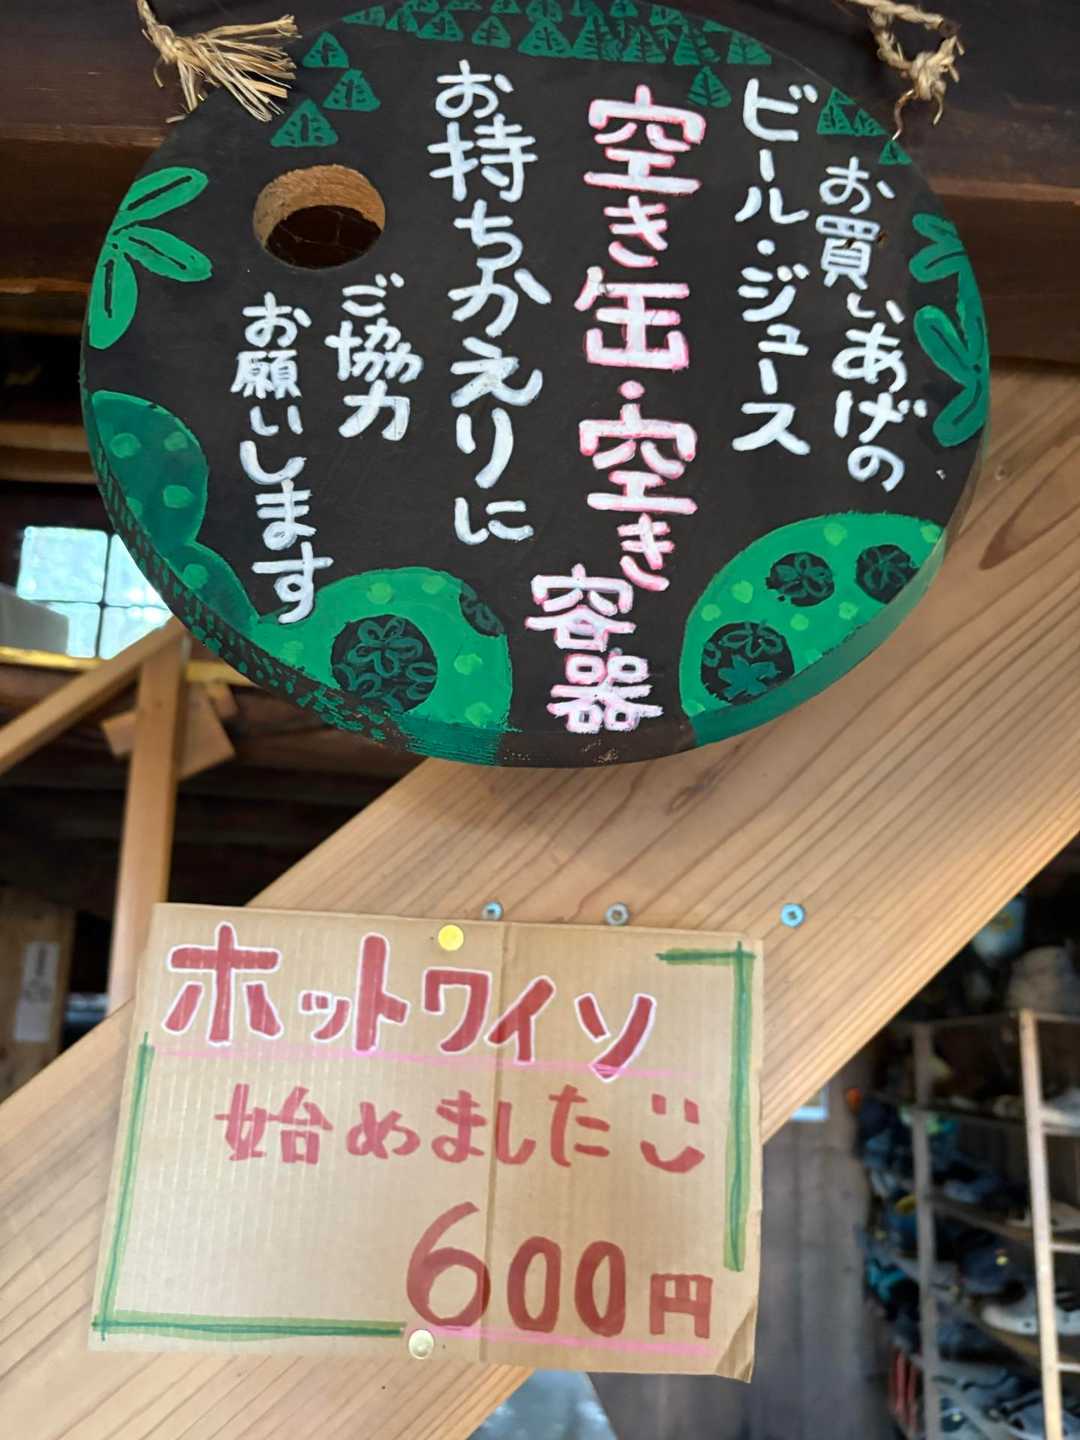 お買いあげの
ビール・ジュース
空き缶・空き容器
お持ちかえりに
ご協力
お願いします
ホットワイソ
始めました
600円